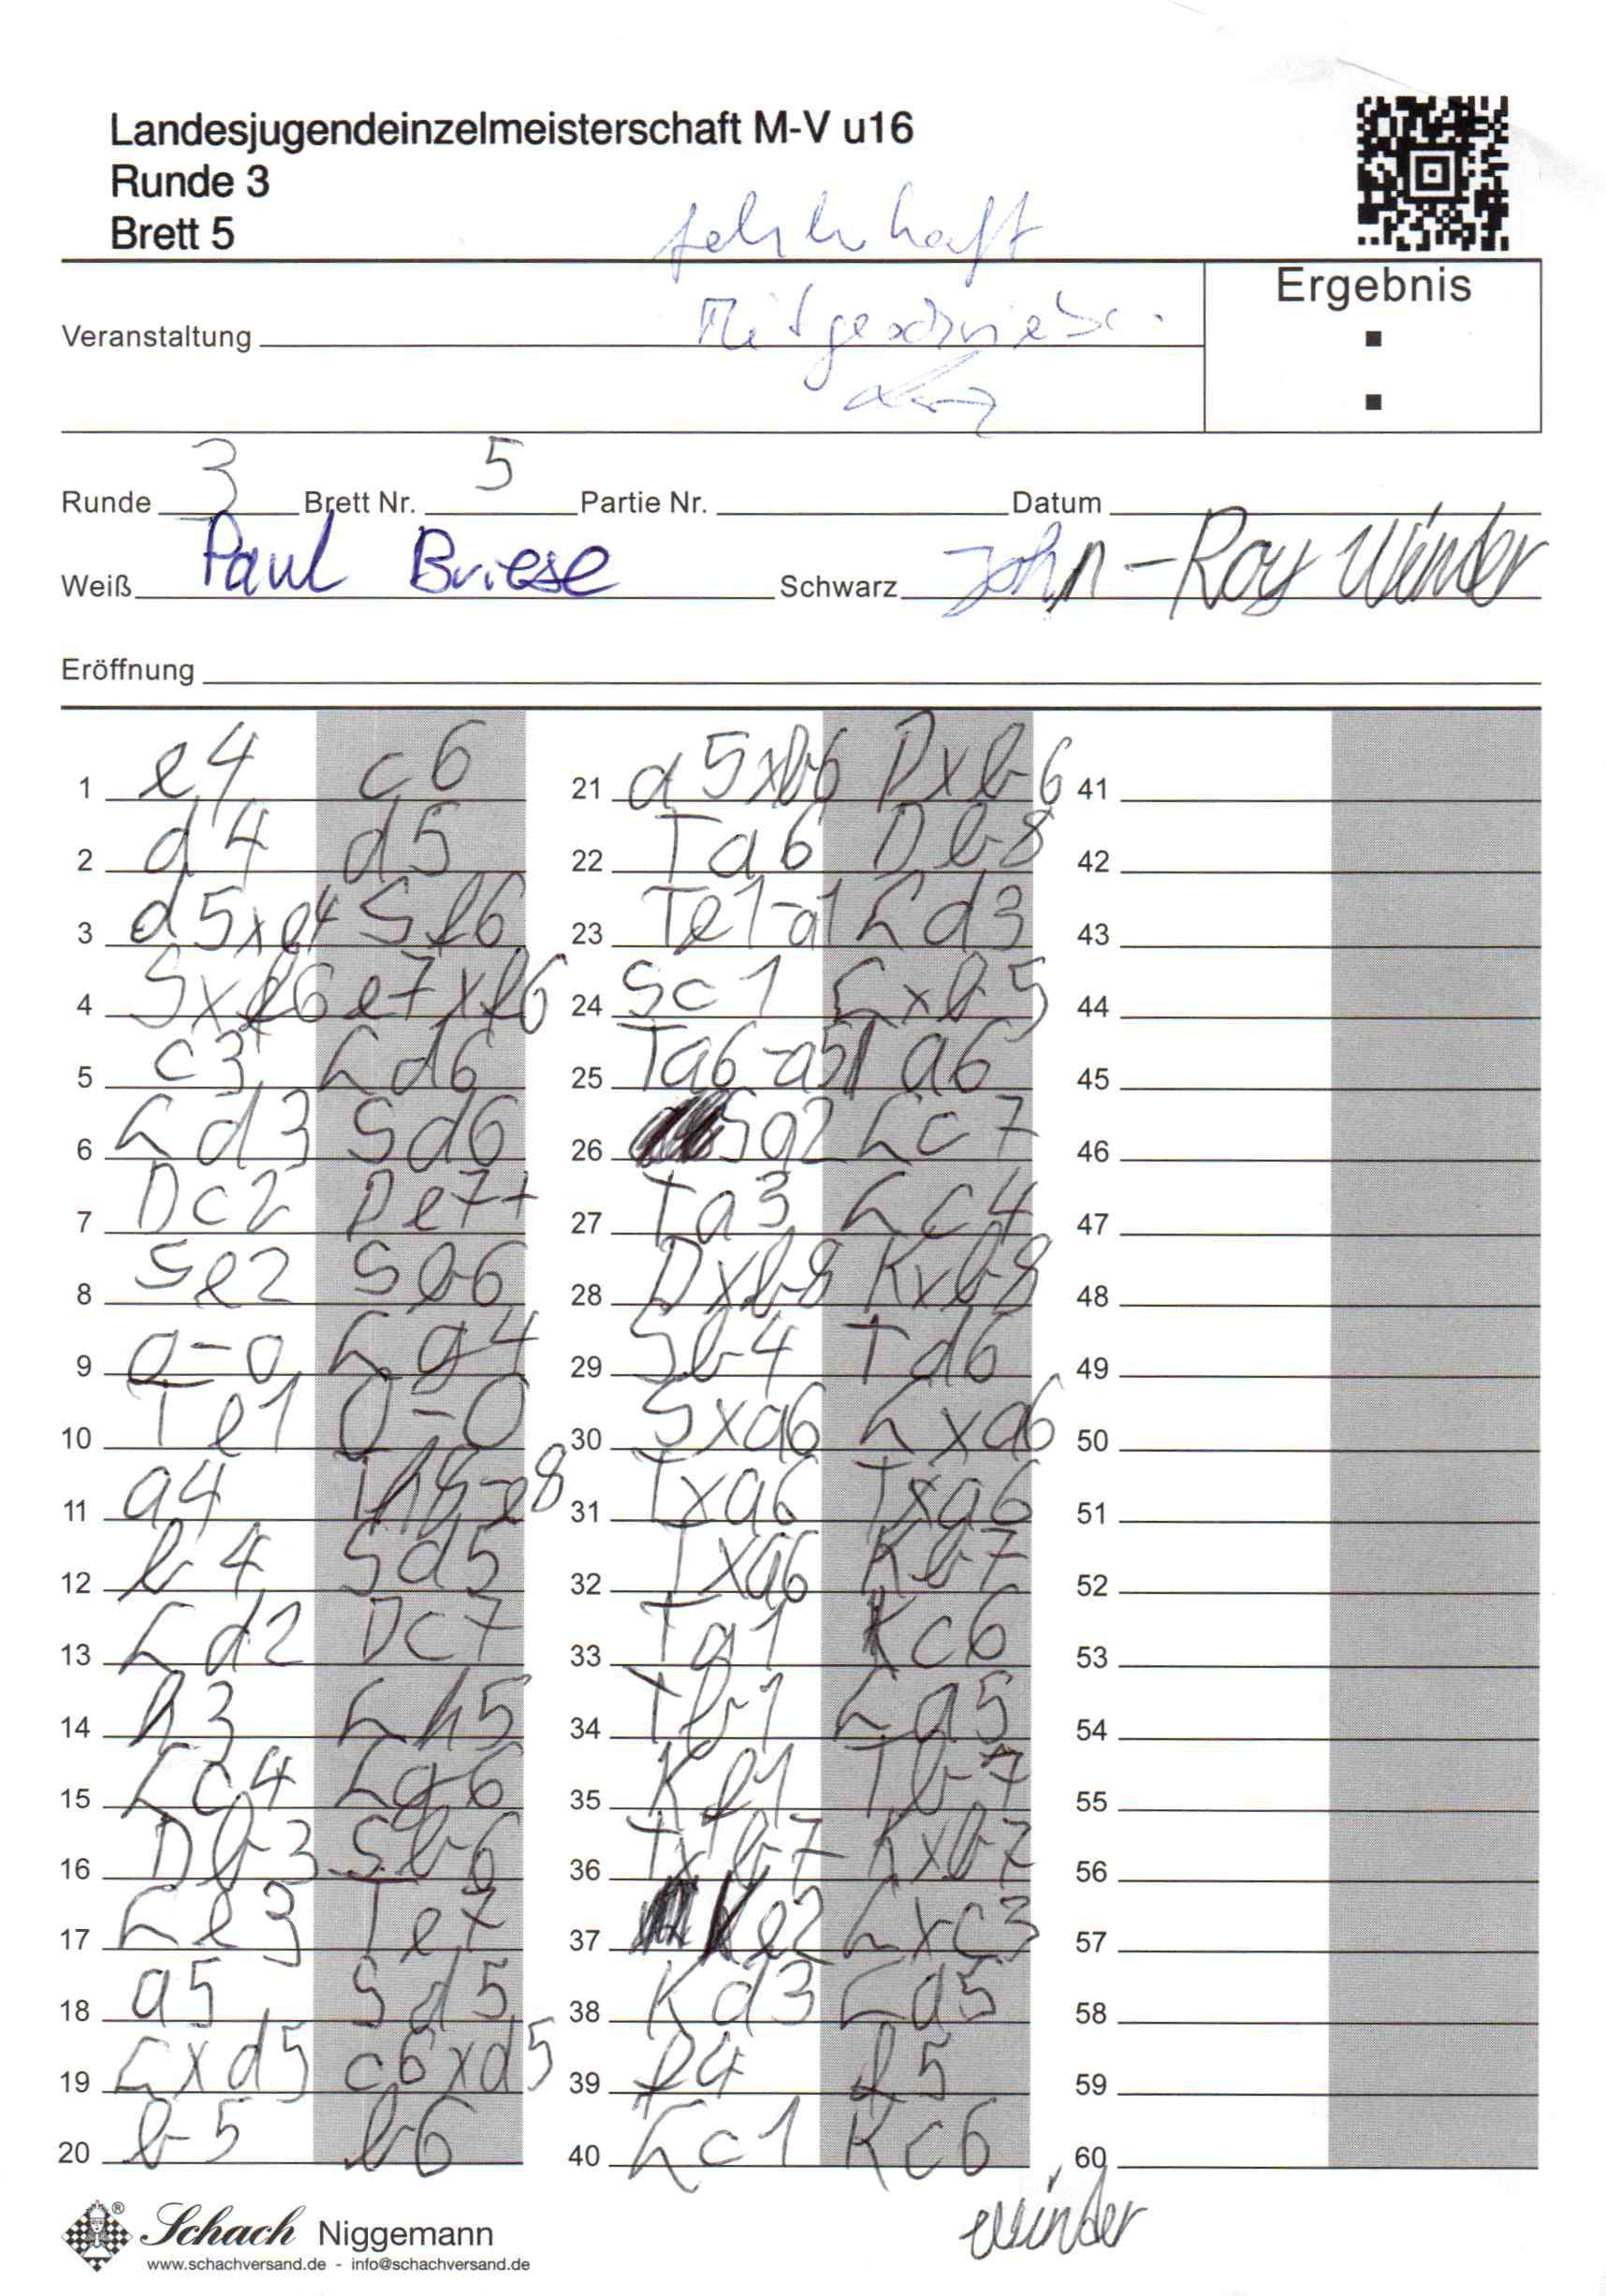 Landesjugendeinzelmeisterschaft M-V u16
Runde 3
Brett 5
fehlerhaft
Mitgeschrieben
Ergebnis
:
Veranstaltung
Runde 3 Brett Nr. 5 Partie Nr. Datum
Weiß Paul Briese Schwarz John-Roy Winter
Eröffnung
1 e4 c6
2 d4 d5
3 d5xe4 Sf6
4 Sxf6+ e7xf6
5 c3 Ld6
6 Ld3 Sd6
7 Dc2 De7+
8 Se2 Sb6
9 0-0 Lg4
10 Te1 0-0
11 a4 Th8-e8
12 b4 Sd5
13 Ld2 Dc7
14 h3 Lh5
15 Lc4 Lg6
16 Db3 Sb6
17 Le3 Te7
18 a5 Sd5
19 Lxd5 c6xd5
20 b5 b6
21 a5xb6 Dxb6
22 Ta6 Db8
23 Te1-a1 Ld3
24 Sc1 Lxb5
25 Ta6-a5 a6
26 Sa2 Lc7
27 Ta3 Lc4
28 Dxb8 Kxb8
29 Sb4 Td6
30 Sxa6 Lxa6
31 Txa6 Txa6
32 Txa6 Kb7
33 Ta1 Kc6
34 Tb1 La5
35 Kf1 Tb7
36 Txb7 Kxb7
37 Ke2 Lxc3
38 Kd3 La5
39 f4 f5
40 Lc1 Kc6
41
42
43
44
45
46
47
48
49
50
51
52
53
54
55
56
57
58
59
60
winter
Schach Niggemann
www.schachversand.de - info@schachversand.de